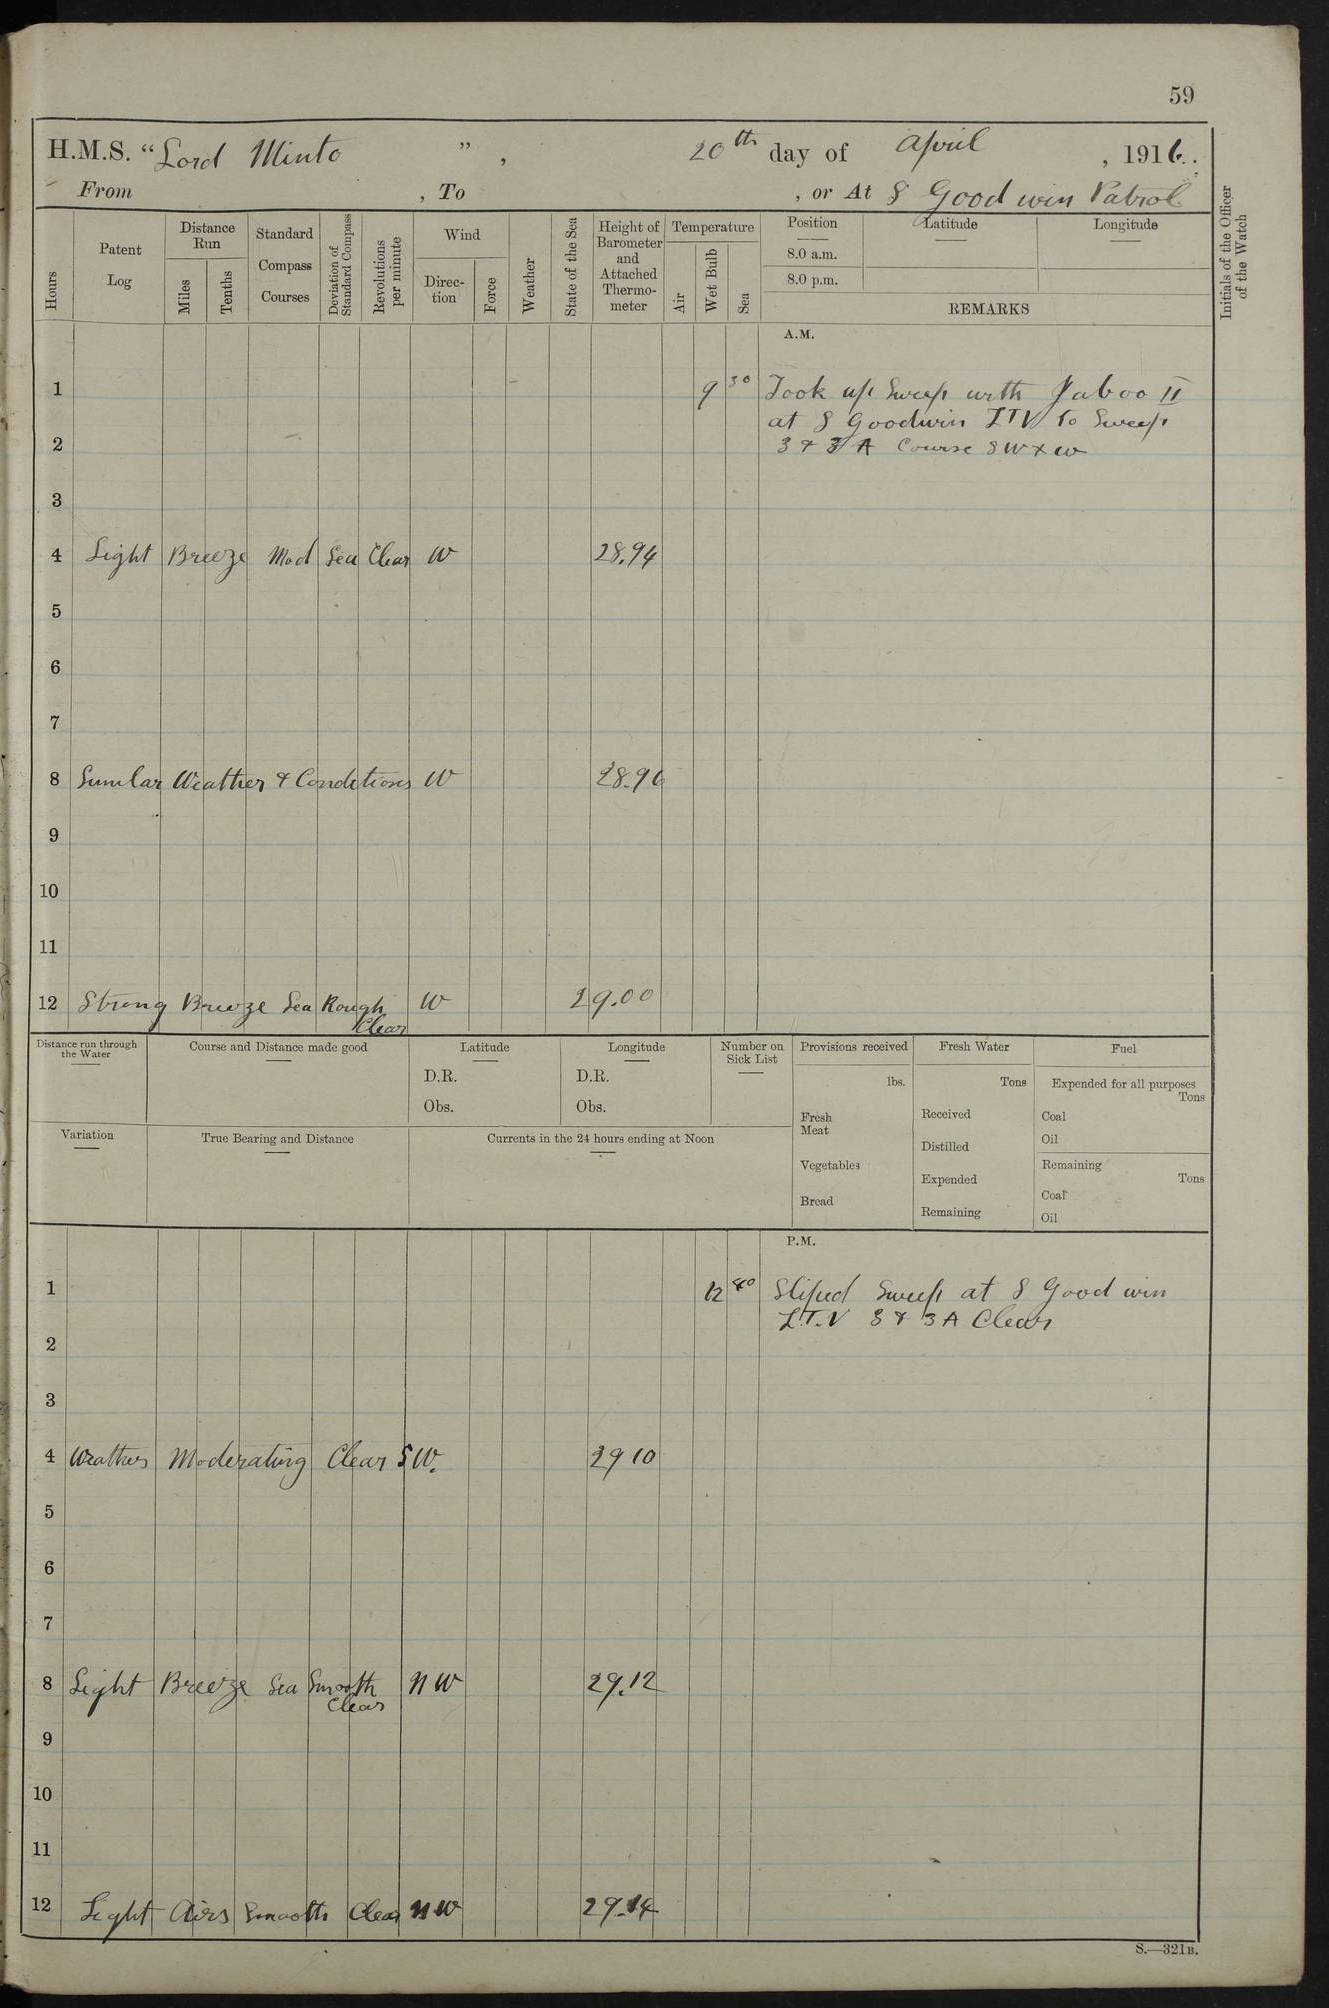 59
H.M.S. “Lord Minto ” , 20th day of April , 1916.
From , To , or At S Goodwin Patrol
Hours
Patent Log
Distance Run
Miles
Tenths
Standard Compass Courses
Deviation of Standard Compass
Revolutions per minute
Wind
Direction
Force
Weather
State of the Sea
Height of Barometer and Attached Thermometer
Temperature
Air
Wet Bulb
Sea
Position
8.0 a.m.
8.0 p.m.
Latitude
Longitude
REMARKS
Initials of the Officer of the Watch
A.M.
1 9 30 Took up Sweep with Yaboo II
at S Goodwin LTV to Sweep
2 3 & 3 A Course SW x W
3
4 Light Breeze Mod Sea Clear W 28.94
5
6
7
8 Similar Weather & Conditions W 28.96
9
10
11
12 Strong Breeze Sea Rough W 29.00
Clear
Distance run through the Water
Course and Distance made good
Latitude
D.R.
Obs.
Longitude
D.R.
Obs.
Number on Sick List
Provisions received
lbs.
Fresh Meat
Vegetables
Bread
Fresh Water
Tons
Received
Distilled
Expended
Remaining
Fuel
Expended for all purposes
Tons
Coal
Oil
Remaining
Tons
Coal
Oil
Variation
True Bearing and Distance
Currents in the 24 hours ending at Noon
P.M.
1 12 40 Sliped Sweep at S Good win
L.T.V 3 & 3 A Clear
2
3
4 Weather Moderating Clear SW. 29 10
5
6
7
8 Light Breeze Sea Smooth NW 29.12
Clear
9
10
11
12 Light Airs Smooth Clear NW 29.14
S.—321B.